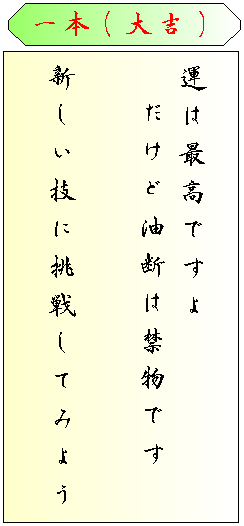 一本（大吉）
運は最高ですよ
だけど油断は禁物です
新しい技に挑戦してみよう